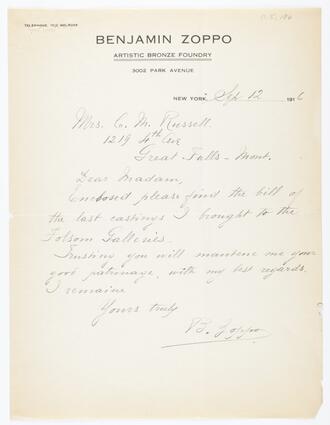 TELEPHONE, MELROSE
BENJAMIN ZOPPO
ARTISTIC BRONZE FOUNDRY
3002 PARK AVENUE
NEW YORK, Sep 12 1916
Mrs. C. M. Russell
1219 4th Ave
Great Falls - Mont.
Dear Madam,
Enclosed please find the bill of
the last castings I brought to the
Folsom Galleries.
Trusting you will mantene me your
good patronage, with my best regards.
I remaine
Yours truly
B. Zoppo